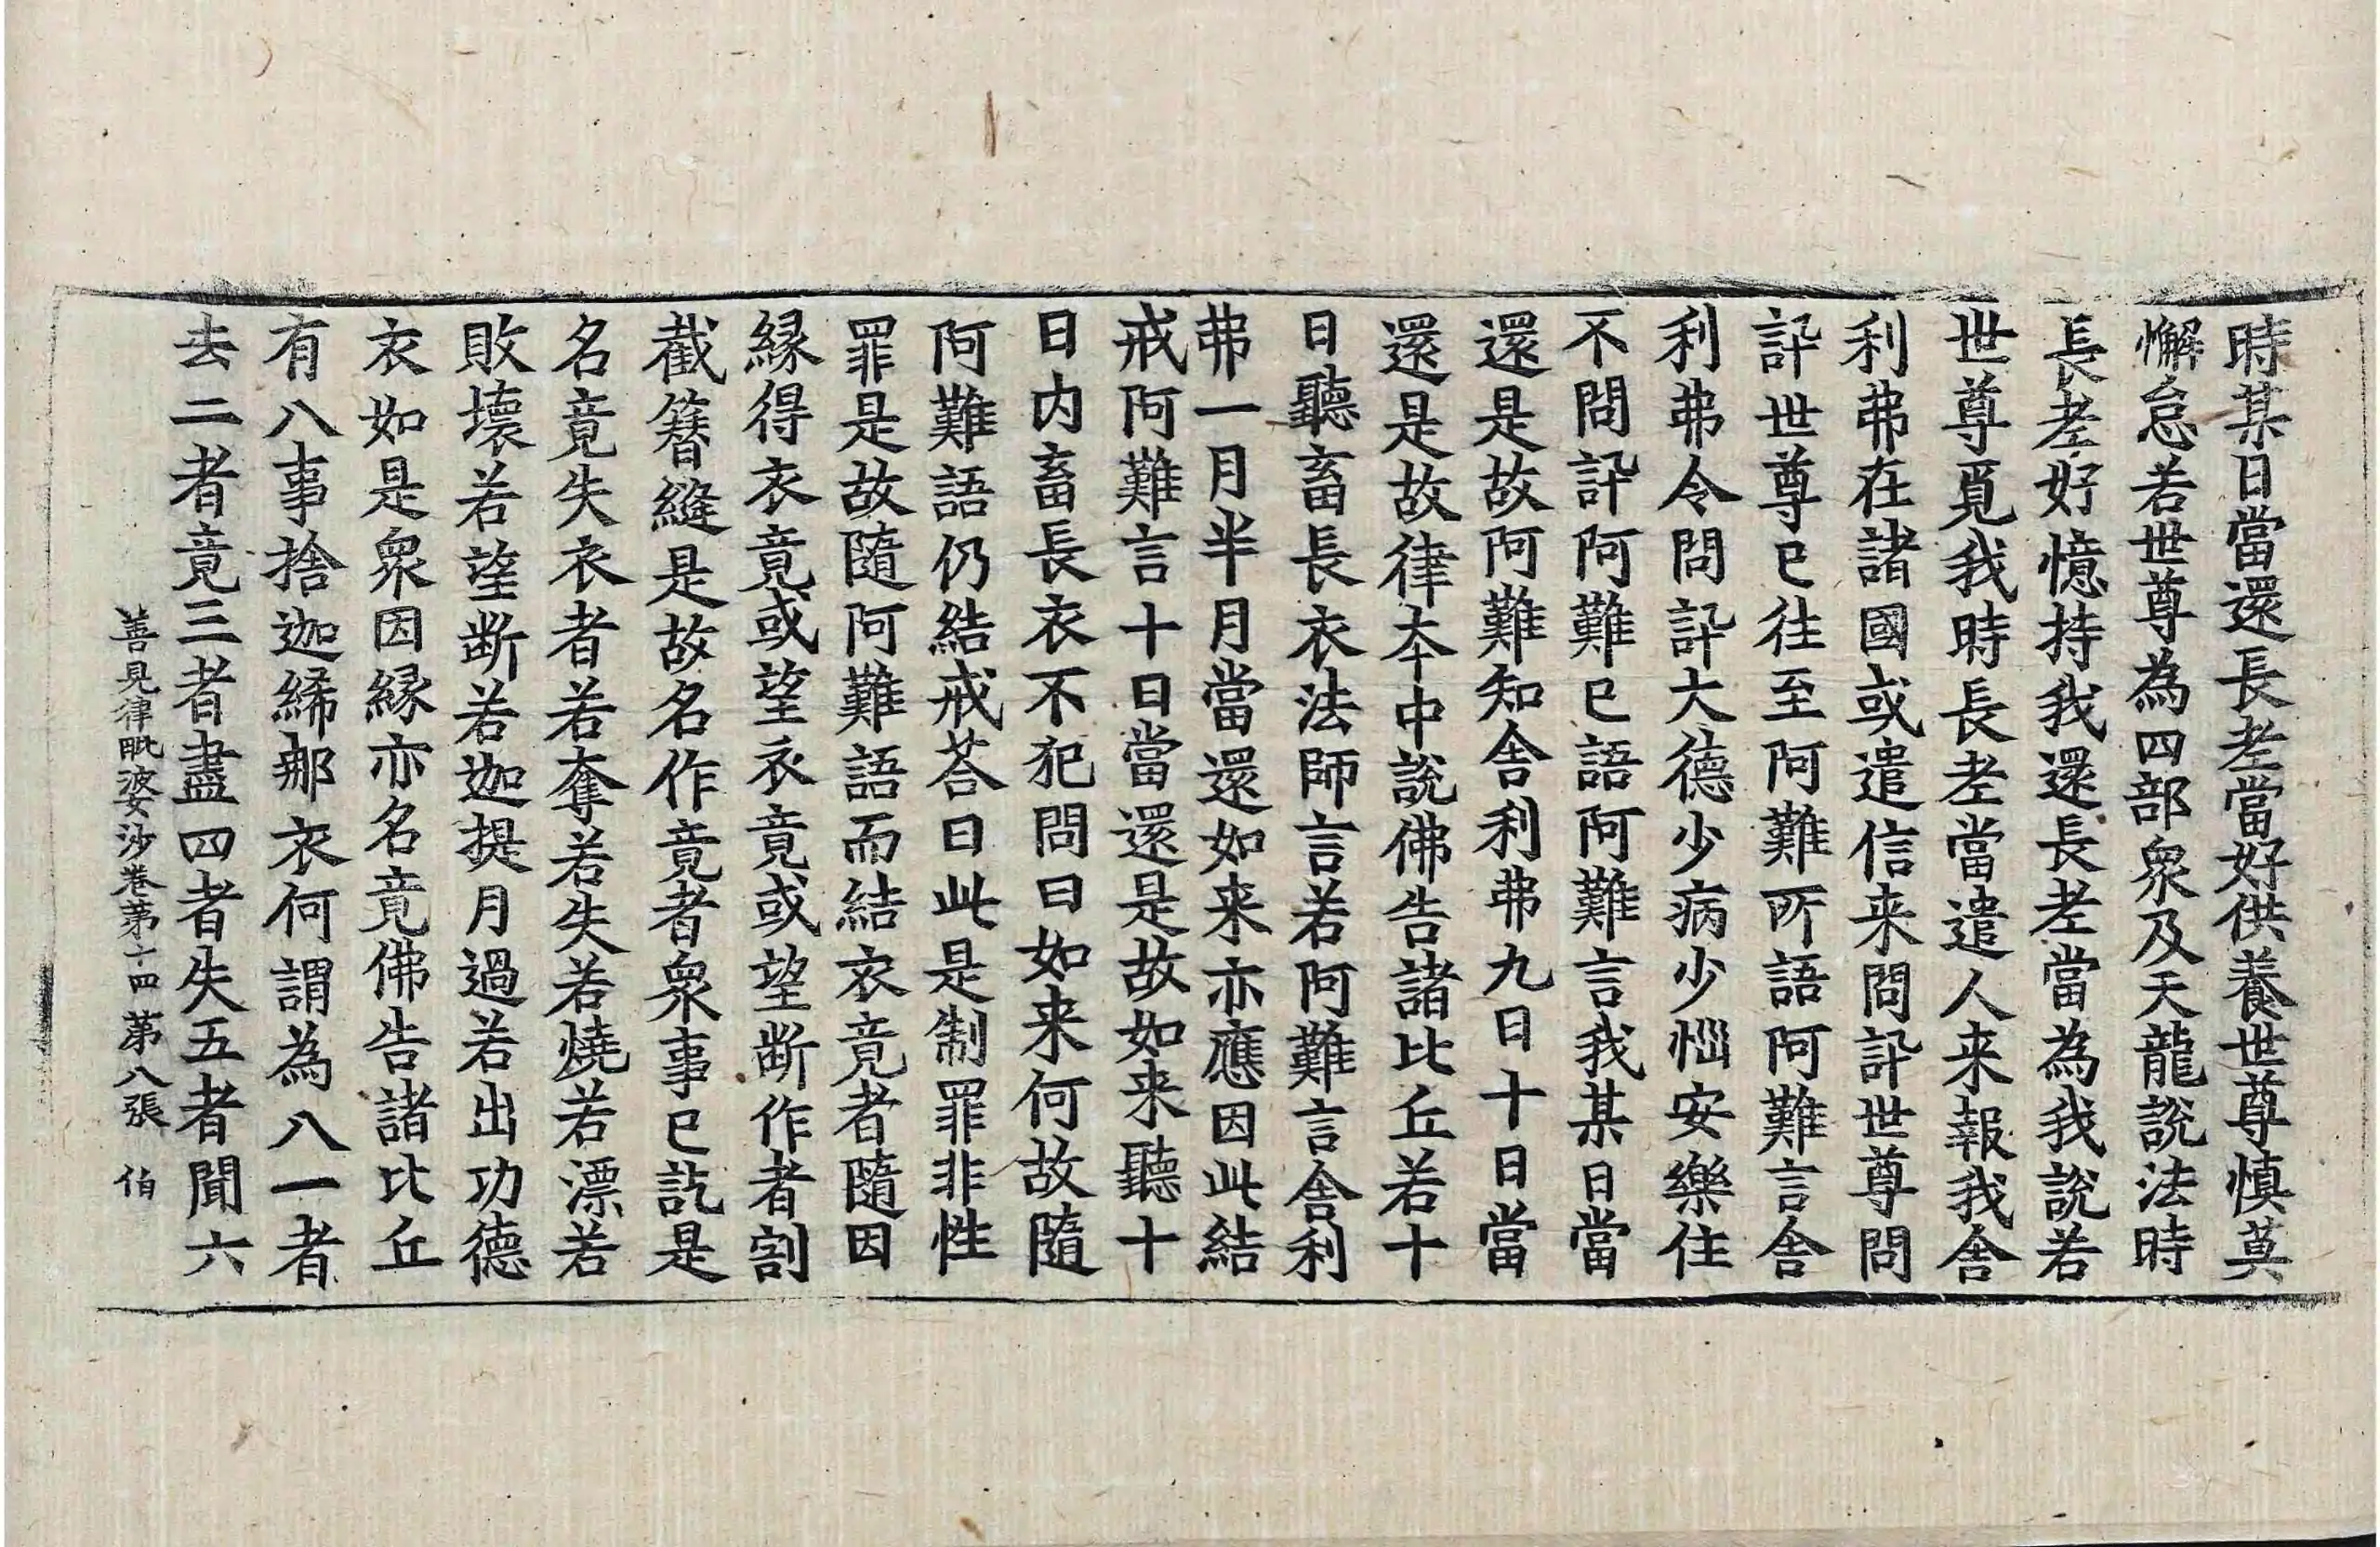 時某日當還長老當好供養世尊慎莫
懈怠若世尊為四部衆及天龍說法時
長老好憶持我還長老當為我說若
世尊覓我時長老當遣人来報我舍
利弗在諸國或遣信来問訃世尊問
訃世尊已往至阿難所語阿難言舍
利弗令問訃大德少病少惱安樂住
不問訃阿難已語阿難言我某日當
還是故阿難知舍利弗九日十日當
還是故律夲中說佛告諸比丘若十
日聽畜長衣法師言若阿難言舍利
弗一月半月當還如来亦應因此結
戒阿難言十日當還是故如来聽十
日内畜長衣不犯問曰如来何故隨
阿難語仍結戒荅曰此是制罪非性
罪是故隨阿難語而結衣竟者隨因
縁得衣竟或望衣竟或望斷作者割
截簪縫是故名作竟者衆事已訖是
名竟失衣者若奪若失若燒若漂若
敗壞若望斷若迦提月過若出功德
衣如是衆因縁亦名竟佛告諸比丘
有八事捨迦絺那衣何謂為八一者
去二者竟三者盡四者失五者聞六
善見律毗婆沙卷第十四 第八張 伯